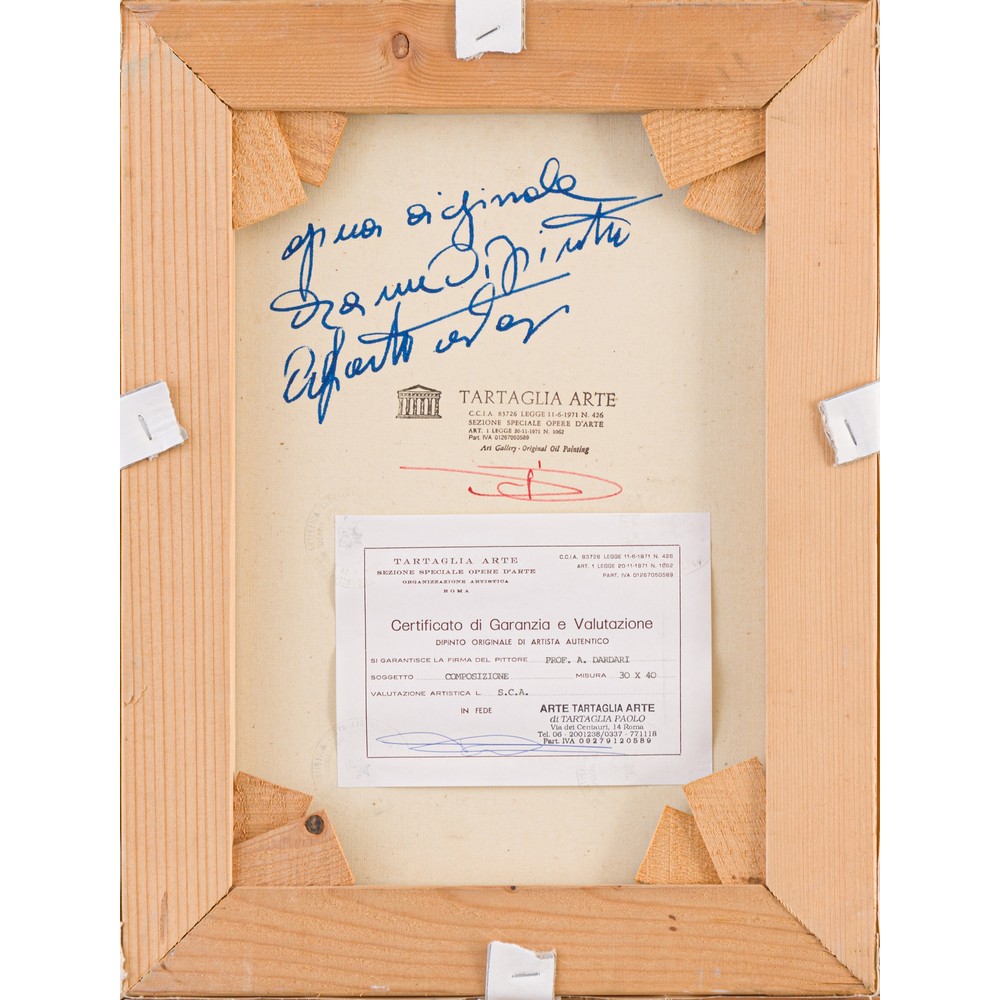 opera originale
da me dipinta
TARTAGLIA ARTE
C.C.I.A. 83726 LEGGE 11-6-1971 N. 426
SEZIONE SPECIALE OPERE D'ARTE
ART. 1 LEGGE 20-11-1971 N. 1062
Part. IVA 01267050589
Art Gallery - Original Oil Painting
TARTAGLIA ARTE
SEZIONE SPECIALE OPERE D'ARTE
ORGANIZZAZIONE ARTISTICA
ROMA
C.C.I.A. 83726 LEGGE 11-6-1971 N. 426
ART. 1 LEGGE 20-11-1971 N. 1062
PART. IVA 01267050589
Certificato di Garanzia e Valutazione
DIPINTO ORIGINALE DI ARTISTA AUTENTICO
SI GARANTISCE LA FIRMA DEL PITTORE PROF. A. DARDARI
SOGGETTO COMPOSIZIONE MISURA 30 X 40
VALUTAZIONE ARTISTICA L. S.C.A.
IN FEDE
ARTE TARTAGLIA ARTE
di TARTAGLIA PAOLO
Via dei Centauri, 14 Roma
Tel. 06 - 2001238/0337 - 771118
Part. IVA 09279120589